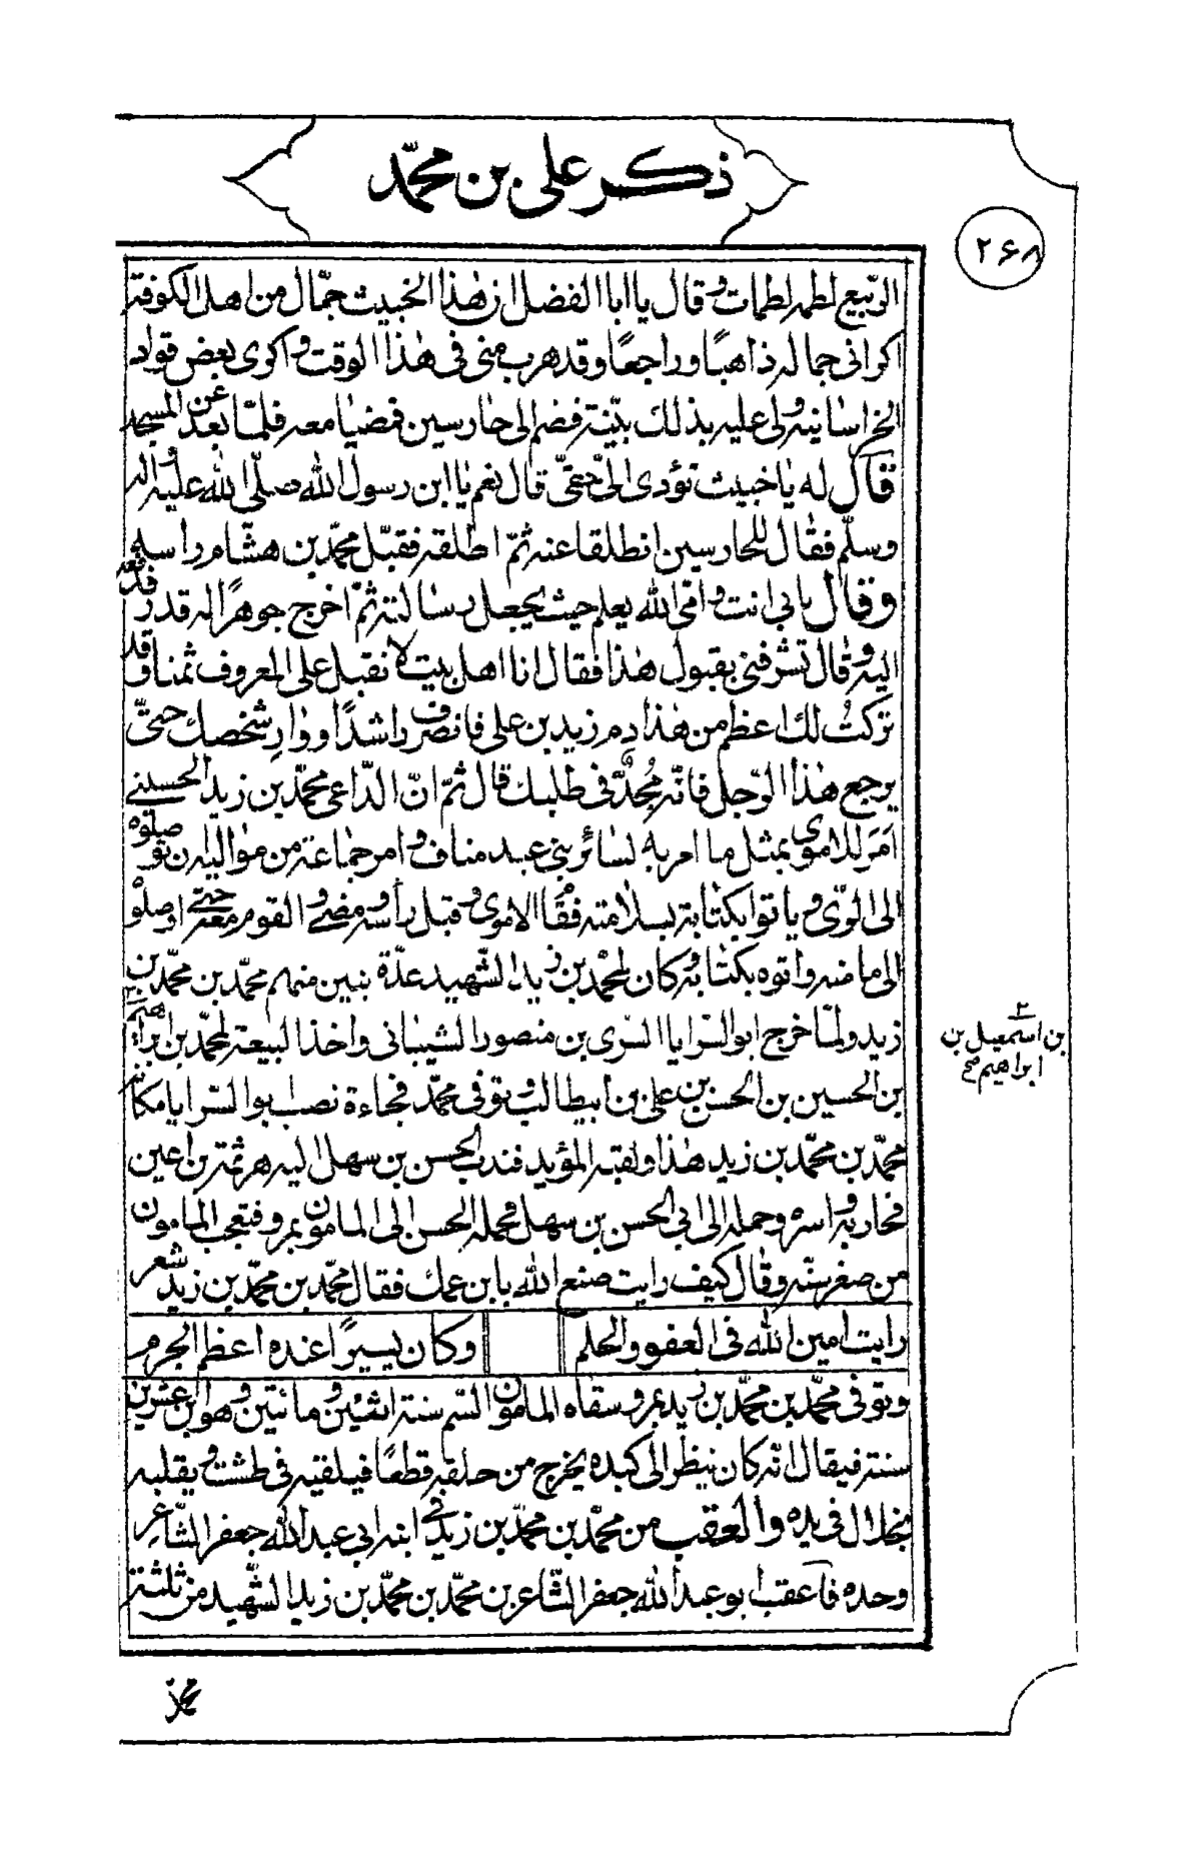 ذكر على بن محمّد
۲۶۸
الرّبيع لطمه لطمات وقال يا ابا الفضل ان هٰذا الخبيث جمّال من اهل الكوفة
اكرانى جماله ذاهبًا وراجعًا وقد هرب منى فى هٰذا الوقت واكرى بعض قواد
الخراسانية ولى عليه بذلك بيّنة فضم الى حارسين فمضيا معه فلمّا بعد عن المسجد
قال له يا خبيث تؤدى الىّ حقى قال نعم يا ابن رسول الله صلّى الله عليه واله
وسلّم فقال للحارسين انطلقا عنه ثمّ اطلقه فقبّل محمّد بن هشام راسه
وقال بابى انت وامى الله يعلم حيث يجعل رسالته ثمّ اخرج جوهرًا له قدر فدفعه
اليه وقال تشرفنى بقبول هٰذا فقال انا اهل بيت لا نقبل على المعروف ثمنا وقد
تركتُ لك اعظم من هٰذا دم زيد بن على فانصرف راشدًا ووارِ شخصك حتىّ
يرجع هٰذا الرّجل فانّه مُجدٌّ فى طلبك قال ثمّ انّ الدّاعى محمّد بن زيد الحسينى
اَمَر للاموى بمثل ما امر به لسائر بنى عبد مناف وامر جماعة من مواليه ن توصلوه
الى الرّى وياتوا بكتابة بسلامته فقام الاموى وقبل رأسه ومضى والقوم معه حتىّ اوصلوه
الى مامنه واتوه بكتابه وكان لمحمّد بن زيد الشّهيد عدّة بنين منهم محمّد بن محمّد بن
زيد ولمّا خرج ابو السّرايا السّرى بن منصور الشيبانى واخذ البيعة لمحمّد بن ابراهيم
بن اسمٰعيل بن
ابراهيم صح
بن الحسين بن الحسن بن على بن ابيطالب توفى محمّد فجاءة نصب ابو السّرايا مكانه
محمّد بن محمّد بن زيد هٰذا ولقبه المؤيد فندب الحسن بن سهل اليه هرثمة بن اعين
فحاربه واسره وحمله الى ابى الحسن بن سهل فحمله الحسن الى المامون بمرو فتعجب المامون
من صغر سنّه وقال كيف رايت صنع الله بابن عمك فقال محمّد بن محمّد بن زيد شعر
رايت امين الله فى العفو والحلم وكان يسيرًا عنده اعظم الجرم
وتوفى محمّد بن محمّد بن زيد بمرو سقاه المامون السّم سنة اثنين ومائتين وهو ابن عشرين
سنة فيقال انّه كان ينظر الى كبده يخرج من حلقه قطعًا فيلقيه فى طشت ويقلبه
بخلال فى يده والعقب من محمّد بن محمّد بن زيد فى ابنه ابى عبد الله جعفر الشّاعر
وحده فاعقب ابو عبد الله جعفر الشّاعر بن محمّد بن محمّد بن زيد الشّهيد من ثلثة
محمّد